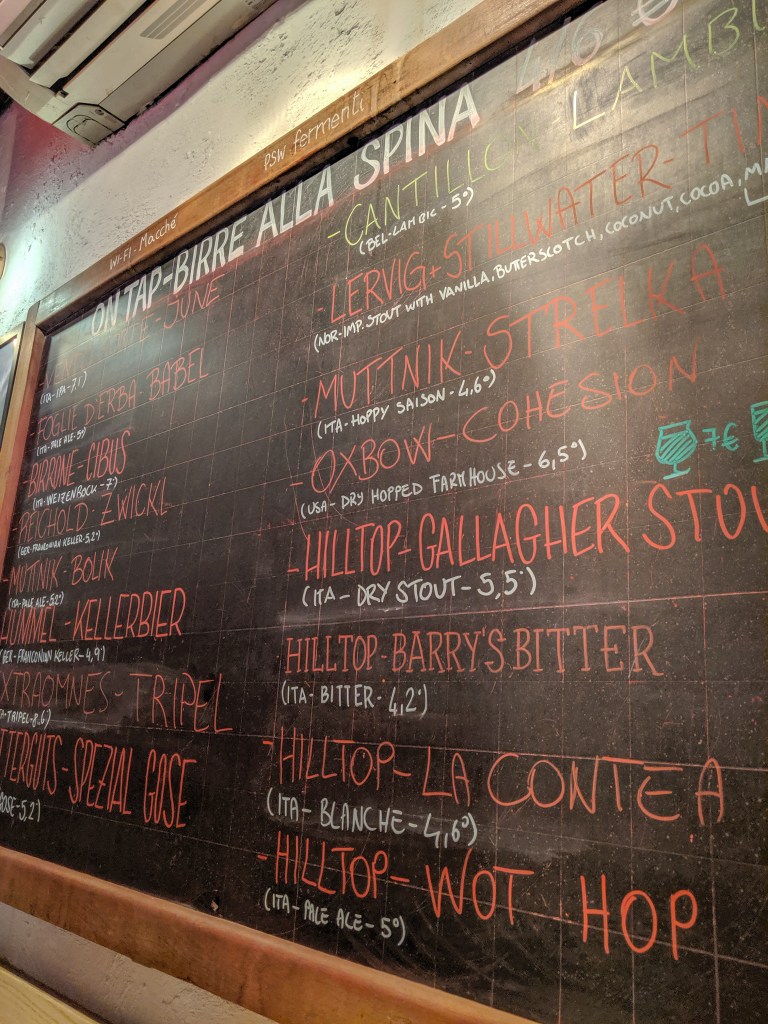 WI-FI - Macché
psw fermenti
ON TAP-BIRRE ALLA SPINA
4/6 €
JUNE
(ITA-IPA-7,1°)
-FOGLIE D'ERBA-BABEL
(ITA-PALE ALE-5°)
-BIRRONE-CIBUS
(ITA-WEIZENBOCK-7°)
REICHOLD-ZWICKL
(GER-FRANCONIAN KELLER-5,2°)
-MUTNIK-BOLIK
(ITA-PALE ALE-5,2°)
HUMMEL-KELLERBIER
(GER-FRANCONIAN KELLER-4,9°)
XTRAOMNES-TRIPEL
TA-TRIPEL-8,6)
TTERGUTS-SPEZIAL GOSE
GOSE-5,2°)
-CANTILLON LAMBI
(BEL-LAMBIC-5°)
-LERVIG+STILLWATER-TI
(NOR-IMP. STOUT WITH VANILLA, BUTTERSCOTCH, COCONUT, COCOA, MA
-MUTTNIK-STRELKA
(ITA-HOPPY SAISON-4,6°)
-OXBOW-COHESION
(USA-DRY HOPPED FARMHOUSE-6,5°)
7€
-HILLTOP-GALLAGHER STOU
(ITA-DRY STOUT-5,5°)
HILLTOP-BARRY'S BITTER
(ITA-BITTER-4,2°)
-HILLTOP-LA CONTEA
(ITA-BLANCHE-4,6°)
-HILLTOP-WOT HOP
(ITA-PALE ALE-5°)